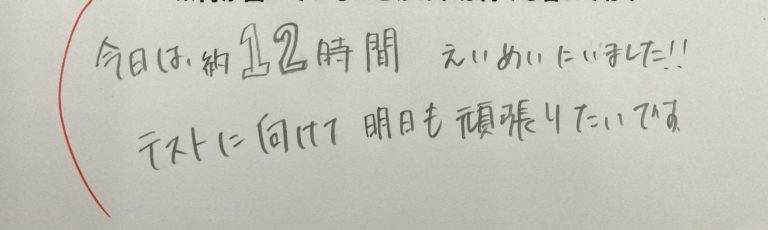 今日は、約12時間 えいめいにいました!!
テストに向けて明日も頑張りたいです